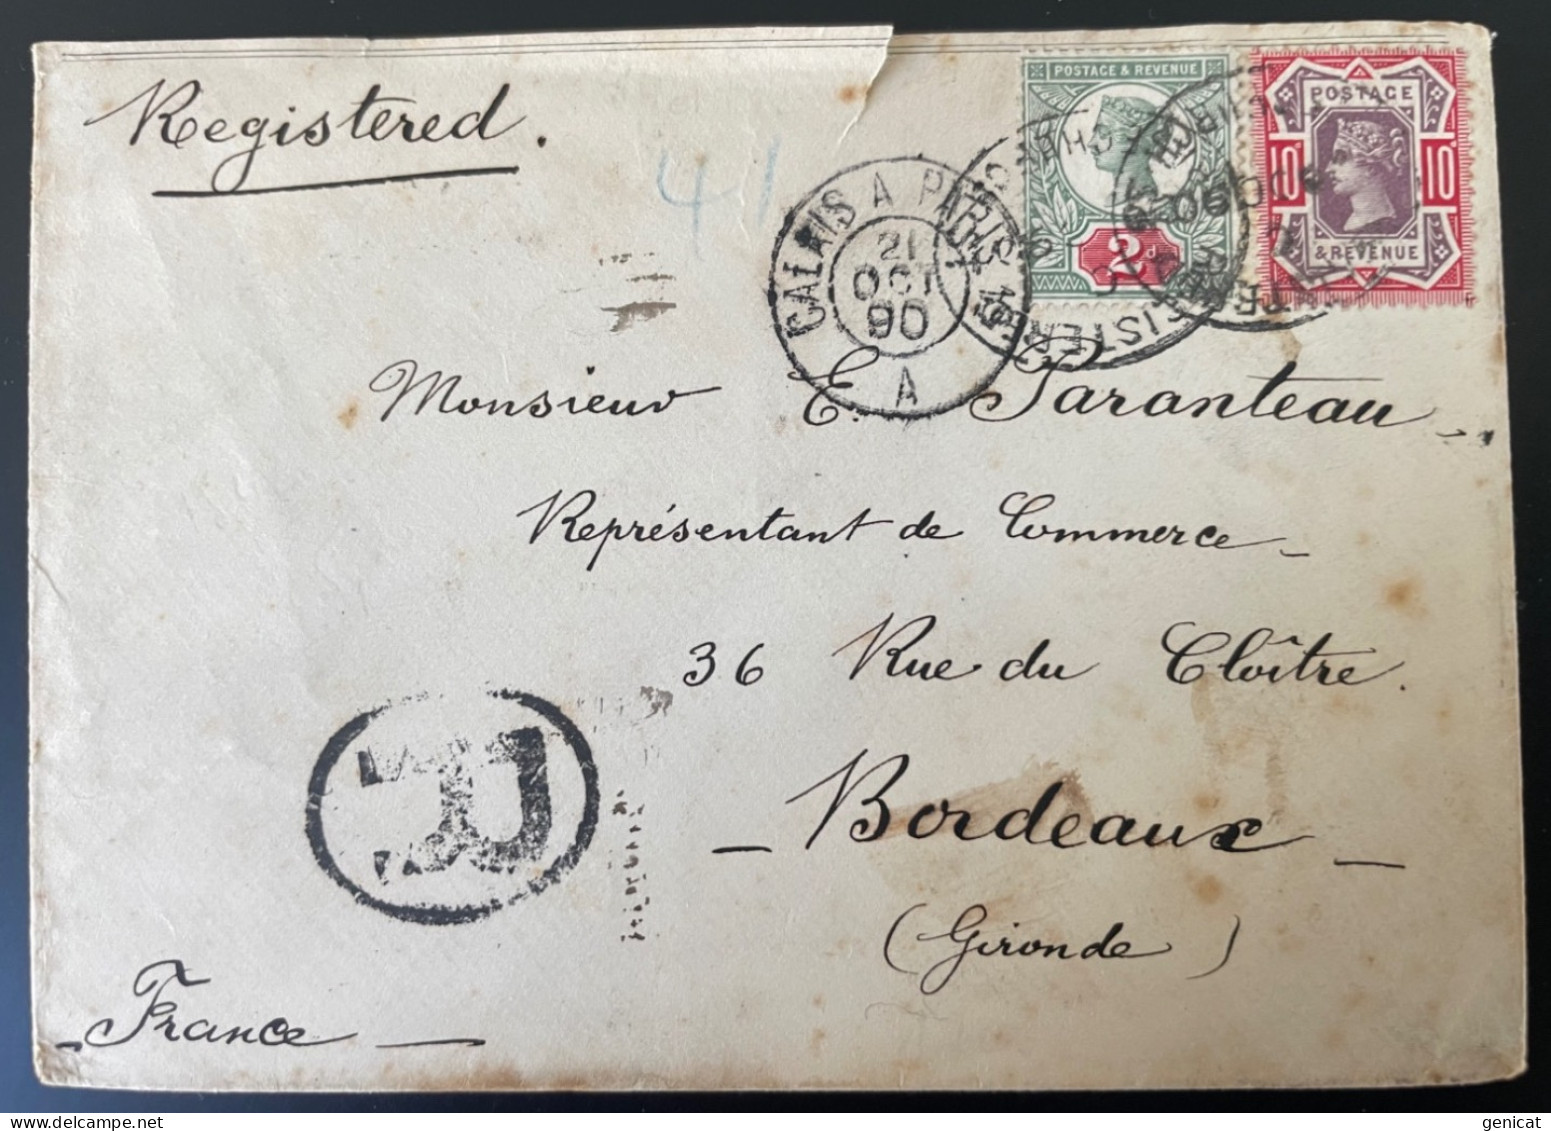 Registered.
41
POSTAGE & REVENUE
2d
POSTAGE
10d 10d
& REVENUE
CALAIS A PARIS
21
OCT
90
A
Monsieur E. Paranteau
Représentant de Commerce
36 Rue du Cloître.
Bordeaux
(Gironde)
R
France
genicat